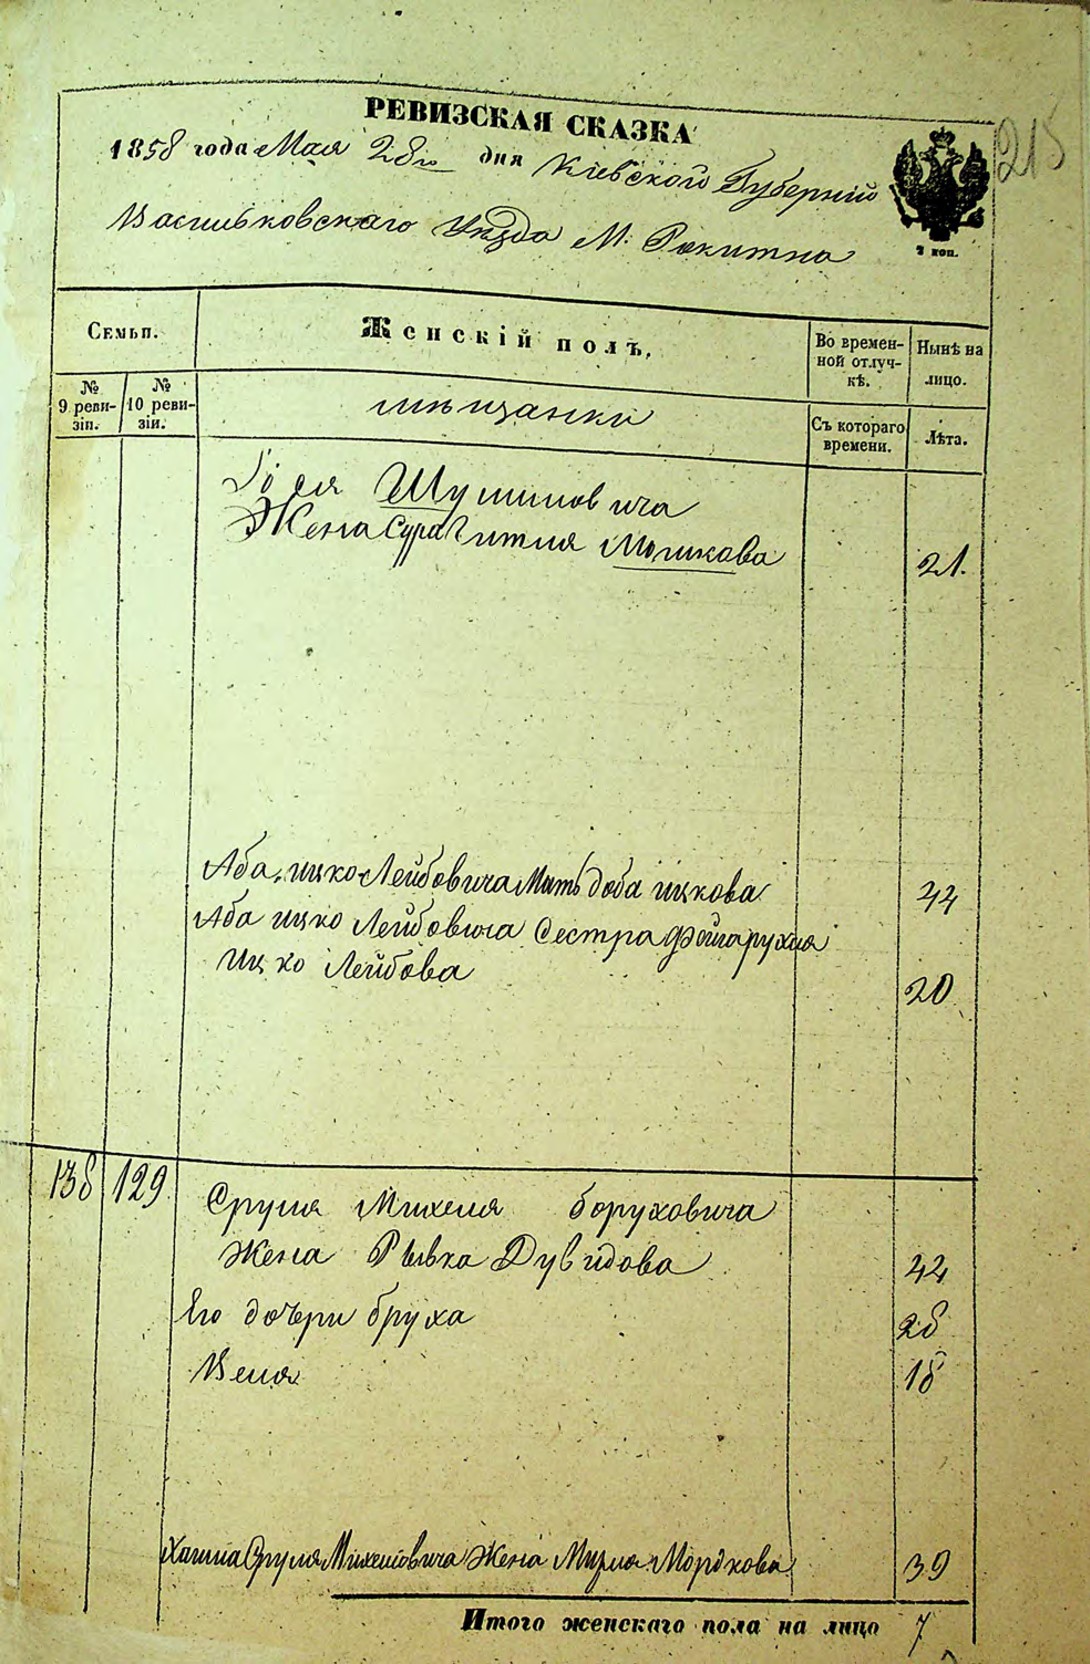 215
РЕВИЗСКАЯ СКАЗКА
1858 года Мая 28го дня Кіевской Губерніи
Васильковскаго Уѣзда М: Рокитна
2 коп.
Семьи.
Женскій полъ.
Во времен-
ной отлуч-
кѣ.
Нынѣ на
лицо.
№
9 реви-
зіи.
№
10 реви-
зіи.
мѣщанки
Съ котораго
времени.
Лѣта.
Шулимовича
Жена Сура Гитля Мошкова 21.
Аба ицко Лейбовича Мать доба ицкова 44
Аба ицко Лейбовича Сестра
ицко Лейбова 20
138 129 Сруля Михеля боруховича
Жена Рывка Дувидова 42
Его дочери бруха 28
Веля 18
Сруля Михелевича Жена Мордкова 39
Итого женскаго пола на лицо 7